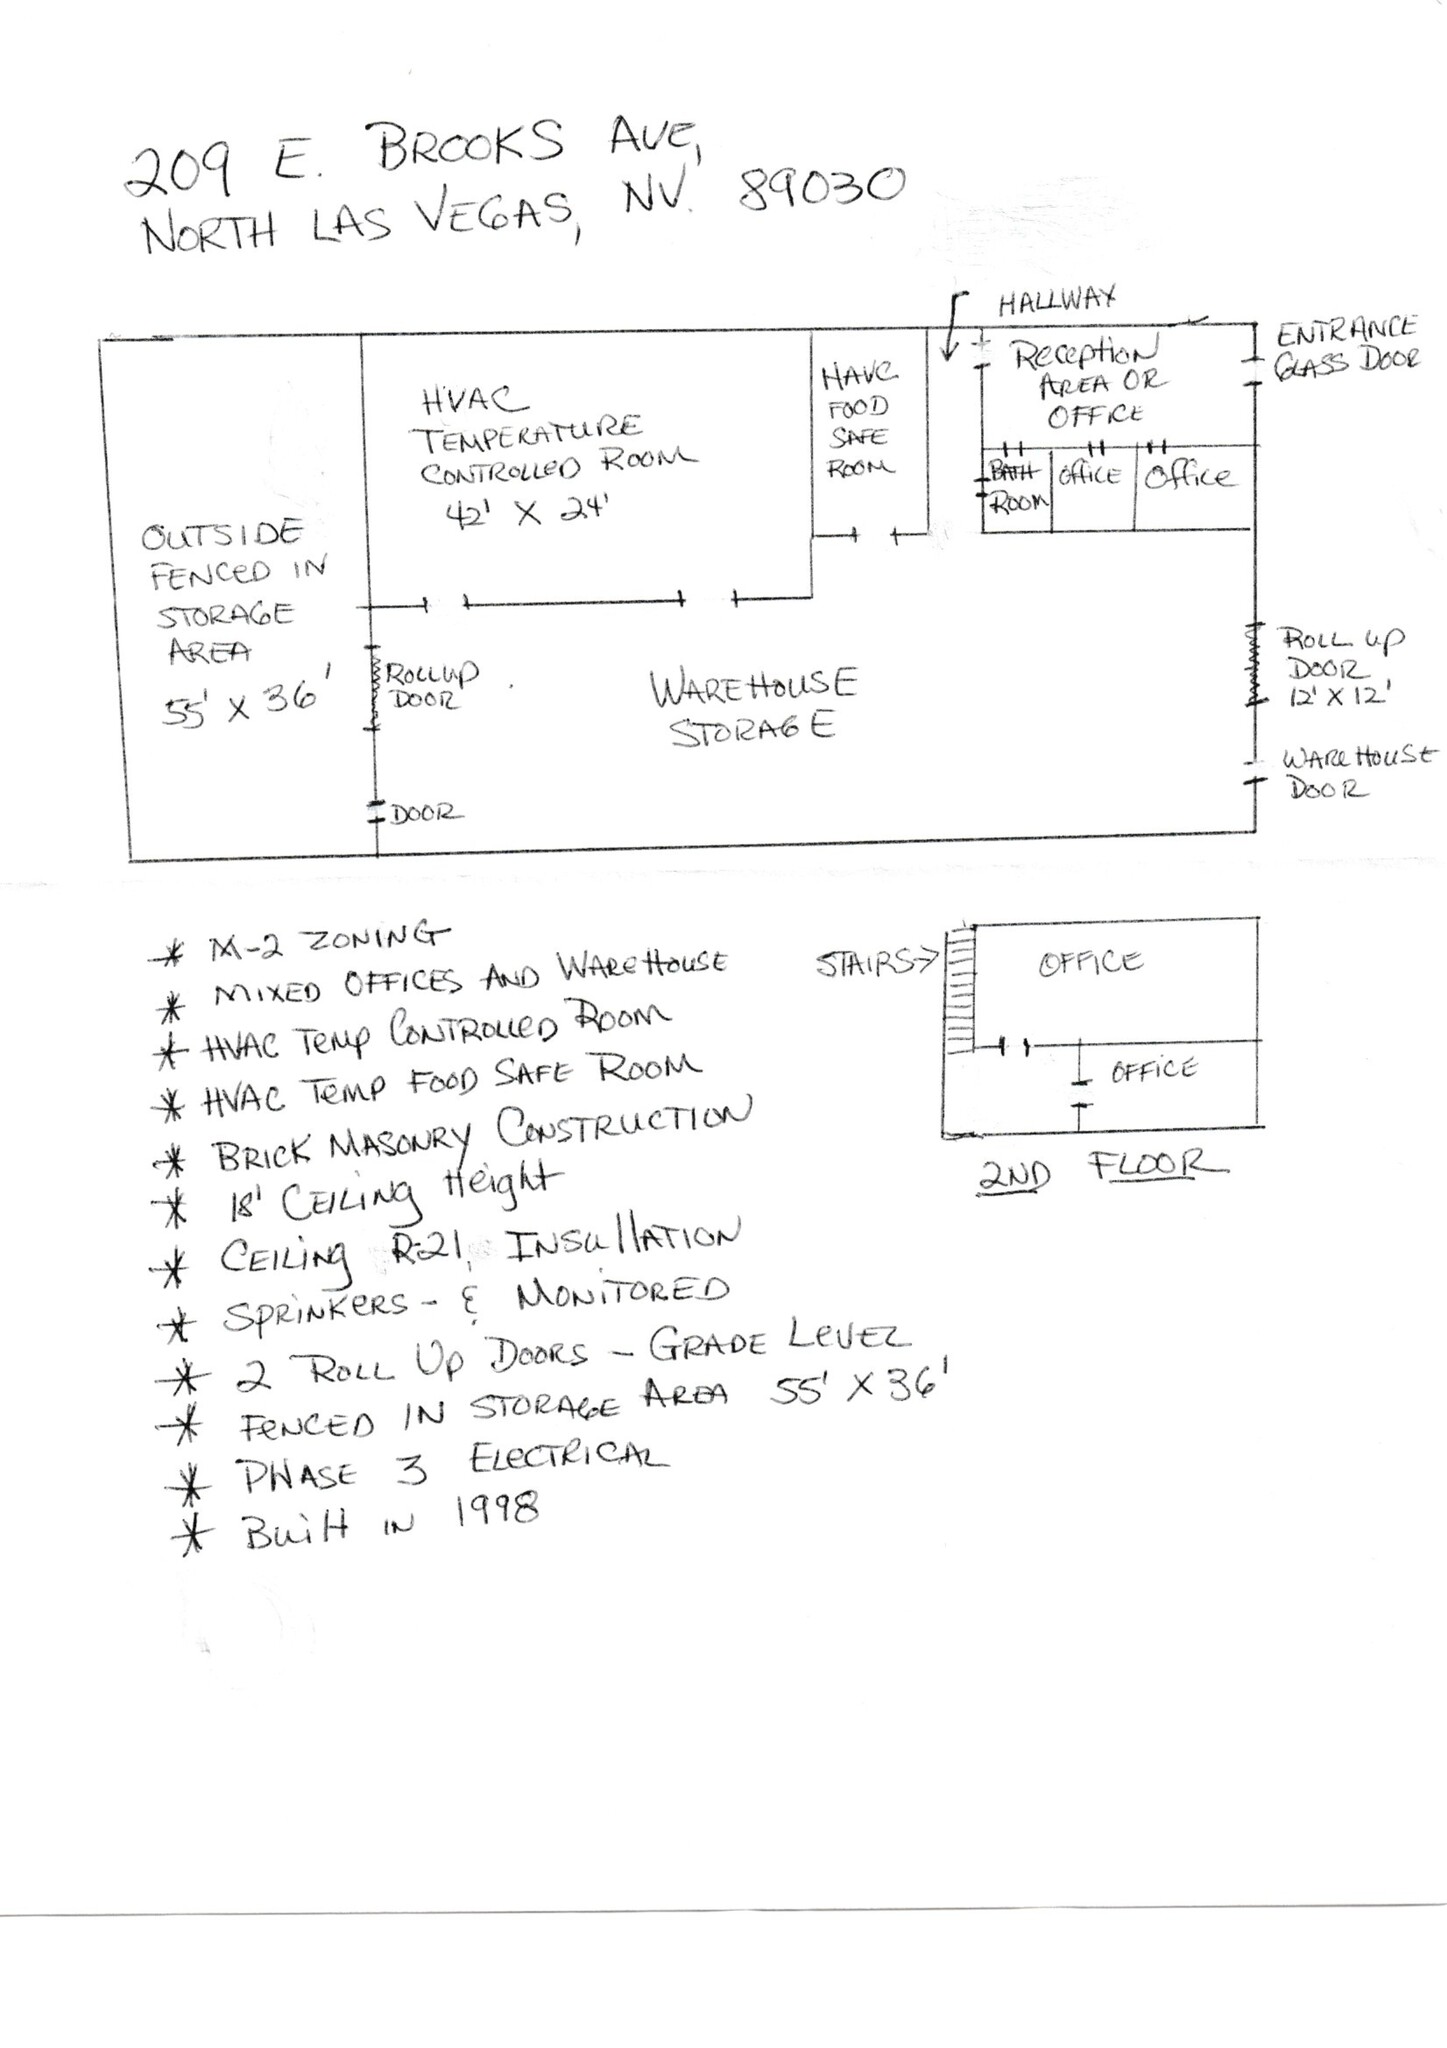 209 E. BROOKS AVE,
NORTH LAS VEGAS, NV. 89030
HALLWAY
ENTRANCE
GLASS DOOR
RECEPTION
AREA OR
OFFICE
HAVC
FOOD
SAFE
ROOM
HVAC
TEMPERATURE
CONTROLLED ROOM
42' X 24'
BATH
ROOM
OFFICE
Office
OUTSIDE
FENCED IN
STORAGE
AREA
55' X 36'
ROLLUP
DOOR
WAREHOUSE
STORAGE
ROLL UP
DOOR
12' X 12'
WAREHOUSE
DOOR
DOOR
* M-2 ZONING
* MIXED OFFICES AND WAREHOUSE
* HVAC TEMP CONTROLLED ROOM
* HVAC TEMP FOOD SAFE ROOM
* BRICK MASONRY CONSTRUCTION
* 18' CEILING Height
* CEILING R-21, INSULLATION
* SPRINKERS - & MONITORED
* 2 ROLL UP DOORS - GRADE LEVEL
* FENCED IN STORAGE AREA 55' X 36'
* PHASE 3 ELECTRICAL
* BUILT IN 1998
STAIRS→
OFFICE
OFFICE
2ND FLOOR